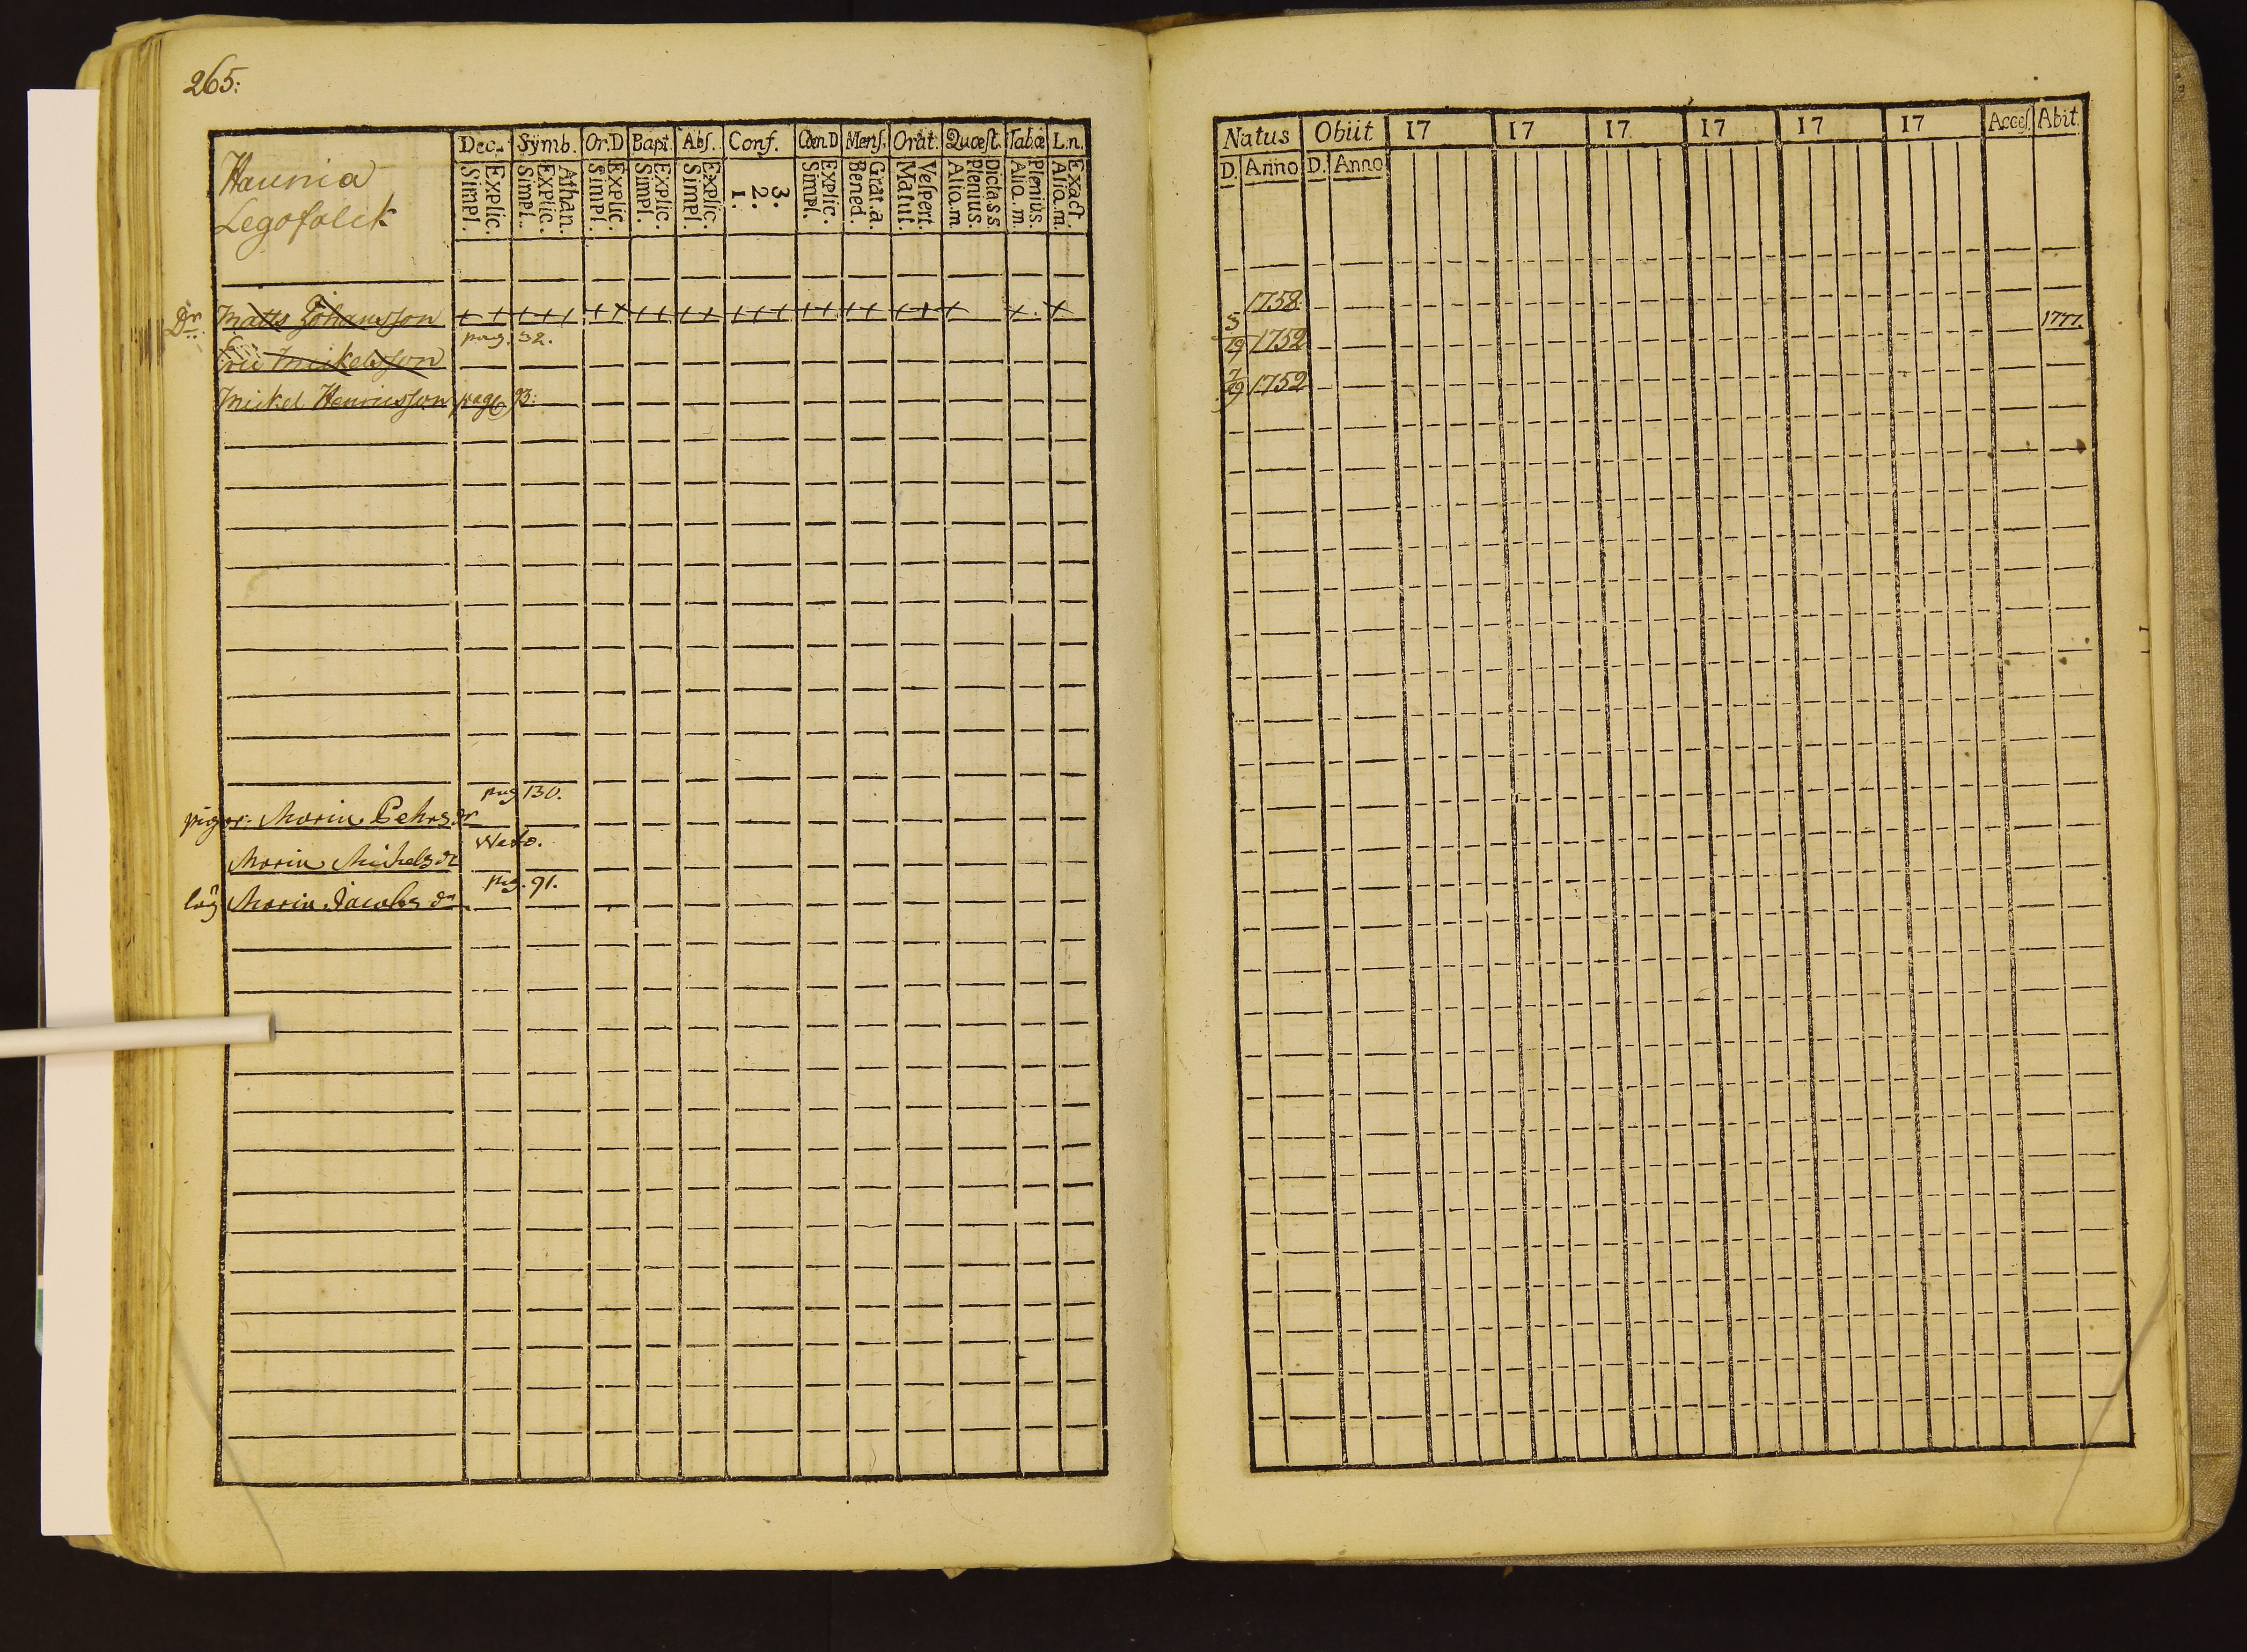 265:
Haunia
Legofolck
Dec. Symb. Or.D Bapt. Abs. Conf. Cœn.D Mens. Orat. Quæst. Tab.œ L.n.
Simpl. Explic. Simpl. Explic. Athan. Simpl. Explic. Simpl. Explic. Simpl. Explic. 1. 2. 3. Simpl. Explic. Bened. Grat.a. Matut. Vespert. Alio.m Plenius. Dicta.s.s. Alio.m. Plenius. Alio.m. Exact.
Dr. Matts Johansson + + + + + + + + + + + + + + + + + + + + + + + +
pag. 32.
Eric Mickelsson
Mickel Henricsson page 93:
pag 130.
pigor: Maria Pehrs dr
Westo.
Maria Michels dr
pag. 91.
lög Maria Jacobs dr
Natus Obiit 17 17 17 17 17 17 Acces. Abit.
D. Anno D. Anno
1758.
5/19 1752 1777.
7/19 1752